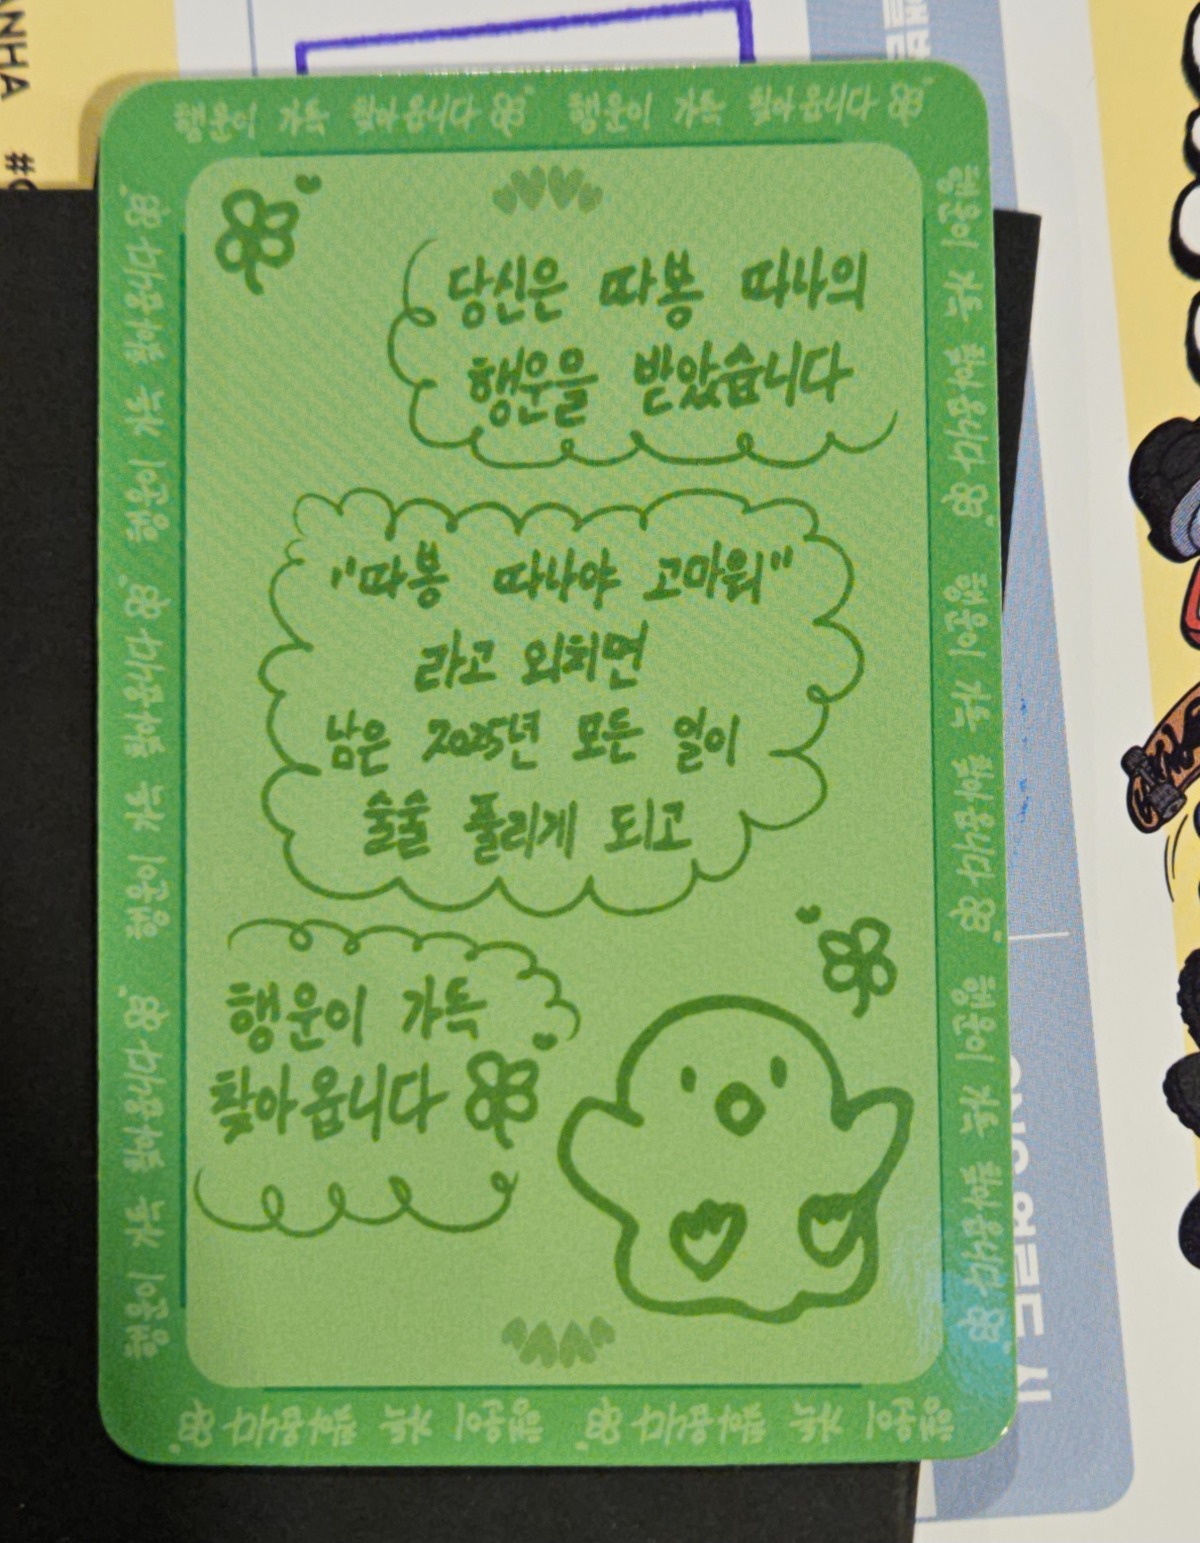 행운이 가득 찾아옵니다 행운이 가득 찾아옵니다
당신은 따봉 띠나의
행운을 받았습니다
"따봉 따나야 고마워"
라고 외치면
남은 2025년 모든 일이
술술 풀리게 되고
행운이 가득
찾아옵니다
행운이 가득 찾아옵니다 행운이 가득 찾아옵니다 행운이 가득 찾아옵니다
행운이 가득 찾아옵니다 행운이 가득 찾아옵니다 행운이 가득 찾아옵니다
행운이 가득 찾아옵니다 행운이 가득 찾아옵니다
ANHA